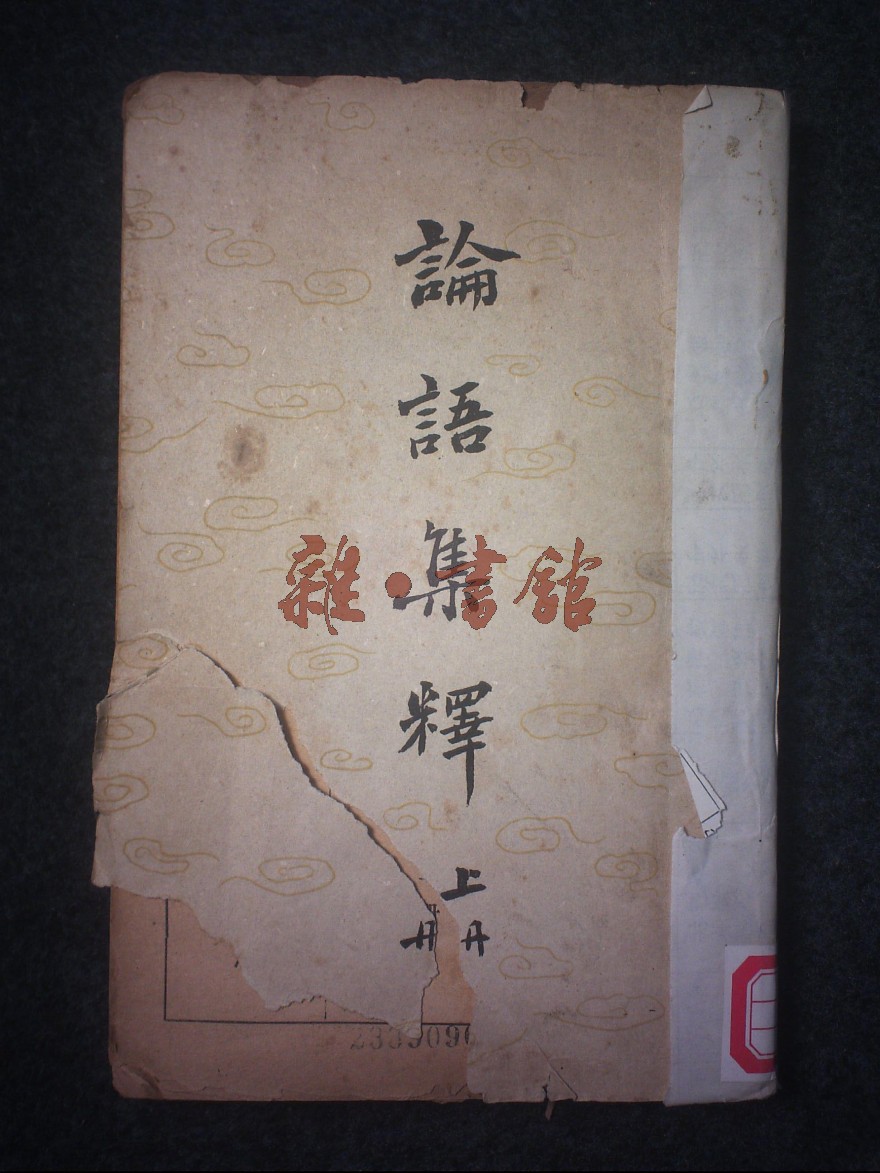 論語集釋
上冊
雜·書館